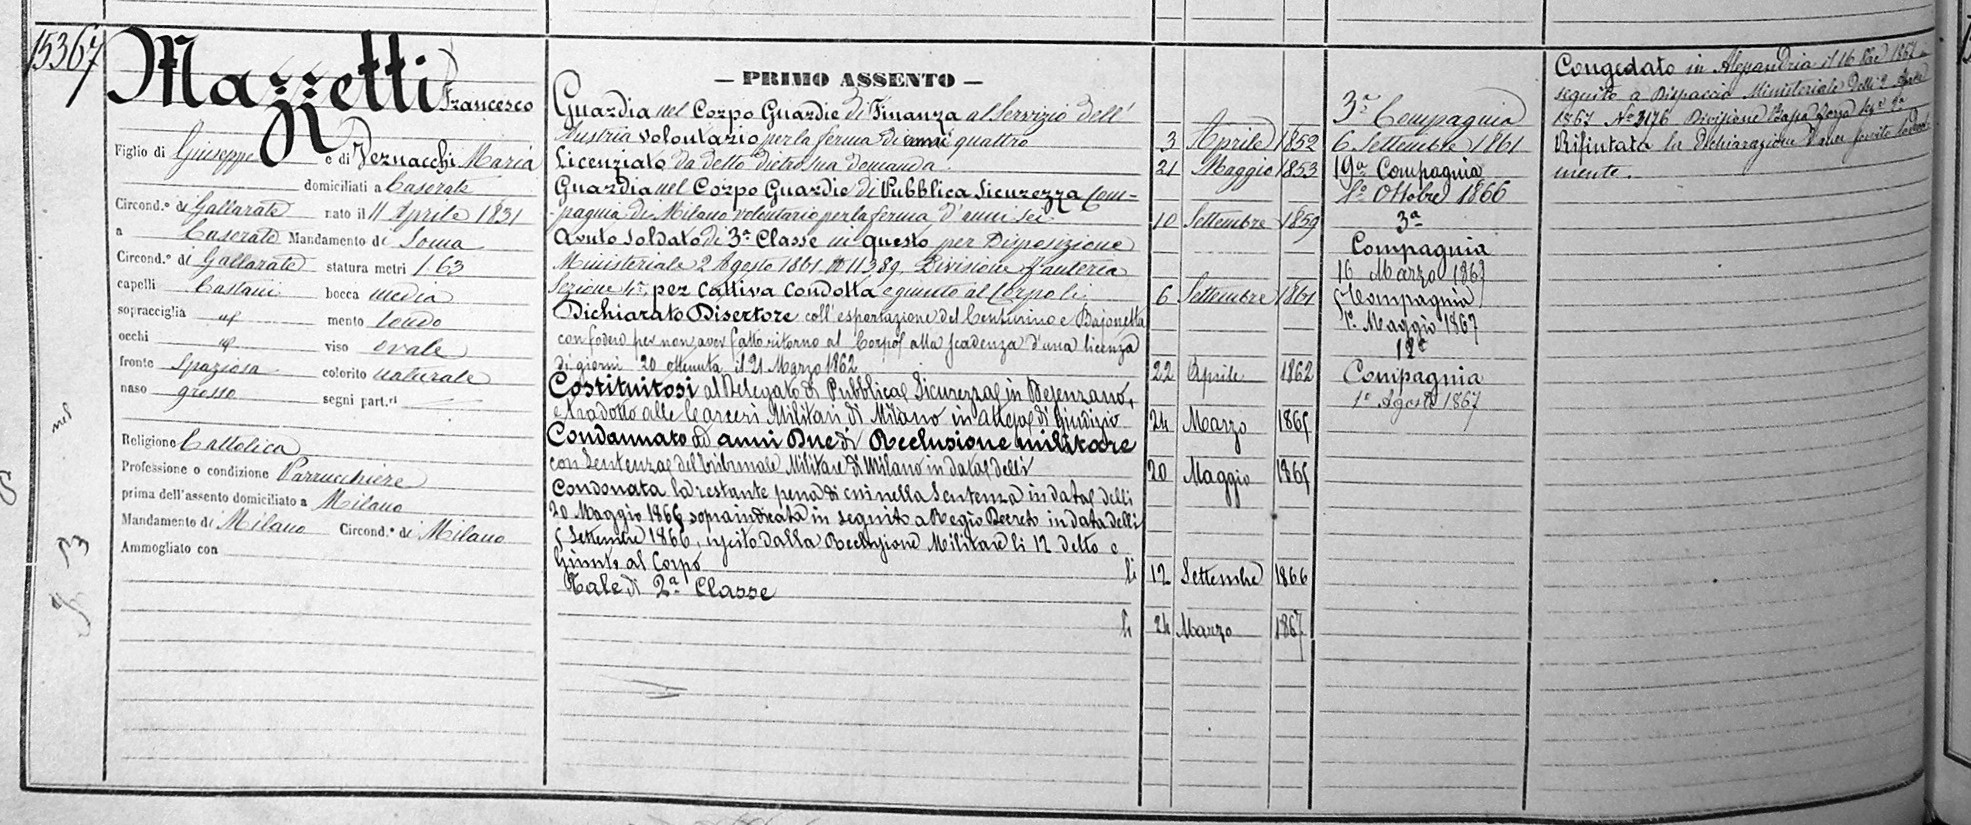 15367
Mazzetti Francesco
Figlio di Giuseppe e di Vernacchi Maria
domiciliati a Casorate
Circond.º di Gallarate nato il 11 Aprile 1831
a Casorate Mandamento di Soma
Circond.º di Gallarate statura metri 1.63
capelli Castani bocca media
sopracciglia mento tondo
occhi viso ovale
fronte Spaziosa colorito naturale
naso grosso segni part.ri
Religione Cattolica
Professione o condizione Parrucchiere
prima dell'assento domiciliato a Milano
Mandamento di Milano Circond.º di Milano
Ammogliato con
— PRIMO ASSENTO —
Guardia nel Corpo Guardie di Finanza al Servizio dell'
Austria volontario per la ferma di anni quattro 3 Aprile 1852
Licenziato da detto dietro sua domanda 21 Maggio 1853
Guardia nel Corpo Guardie di Pubblica Sicurezza Com=
pagnia di Milano volontario per la ferma d'anni sei 10 Settembre 1859
Avuto Soldato di 3ª Classe in questo per Disposizione
Ministeriale 2 Agosto 1861 Nº 11389, Divisione Fanteria
Sezione 4ª per Cattiva Condotta e giunto al Corpo li 6 Settembre 1861
Dichiarato Disertore coll'esportazione del Centurino e Bajonetta
con fodero per non aver fatto ritorno al Corpo alla scadenza d'una licenza
di giorni 20 ottenuta il 21 Marzo 1862 22 Aprile 1862
Costituitosi al Delegato di Pubblica Sicurezza in Desenzano,
e tradotto alle Carceri Militari di Milano in attesa di Giudizio 24 Marzo 1865
Condannato ad anni Due di Reclusione militare
con Sentenza del Tribunale Militare di Milano in data delli 20 Maggio 1865
Condonata la restante pena di cui nella Sentenza in data delli
20 Maggio 1866 sopraindicata in seguito a Regio Decreto in data delli
5 Settembre 1866, uscito dalla Reclusione Militare li 12 detto e
Giunto al Corpo li 12 Settembre 1866
Tale di 2ª Classe
li 24 Marzo 1867
3ª Compagnia
6 Settembre 1861
19ª Compagnia
1º Ottobre 1866
3ª
Compagnia
16 Marzo 1867
5ª Compagnia
1º Maggio 1867
12ª
Compagnia
1º Agosto 1867
Congedato in Alessandria il 16 1867 in
seguito a Dispaccio Ministeriale delli 2
1867 Nº 3176 Divisione Bassa Forza
Rifiutata la Dichiarazione d'aver servito
mente.